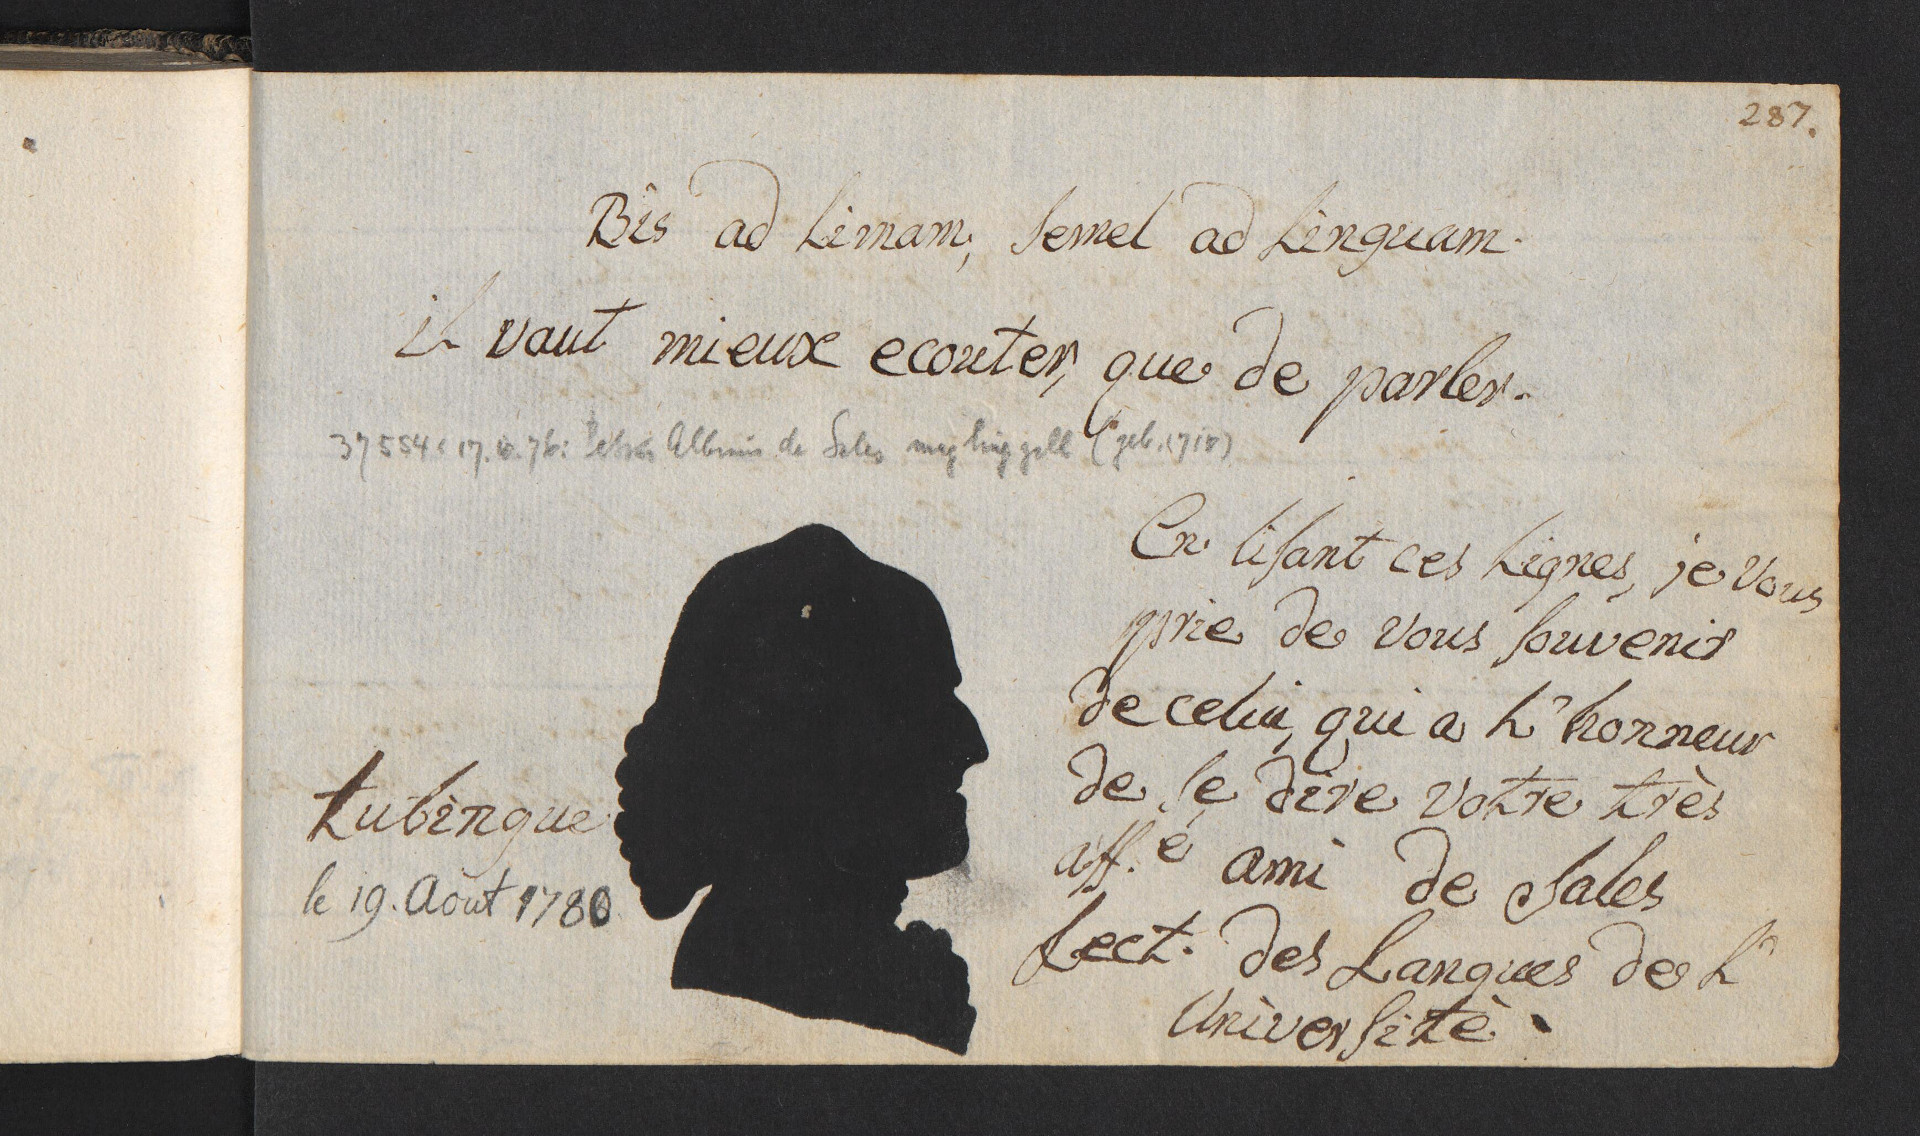 287.
Bis ad Limam, semel ad Linguam.
il vaut mieux ecouter, que de parler.
37554: 17. 76: de Sales (geb. 1718)
En lisant ces Lignes, je vous
prie de vous souvenir
de celui, qui a L'honneur
de se dire votre très
aff.é ami de Sales
Lect. des Langues de L'
Université.
Tubingue
le 19. Aout 1780